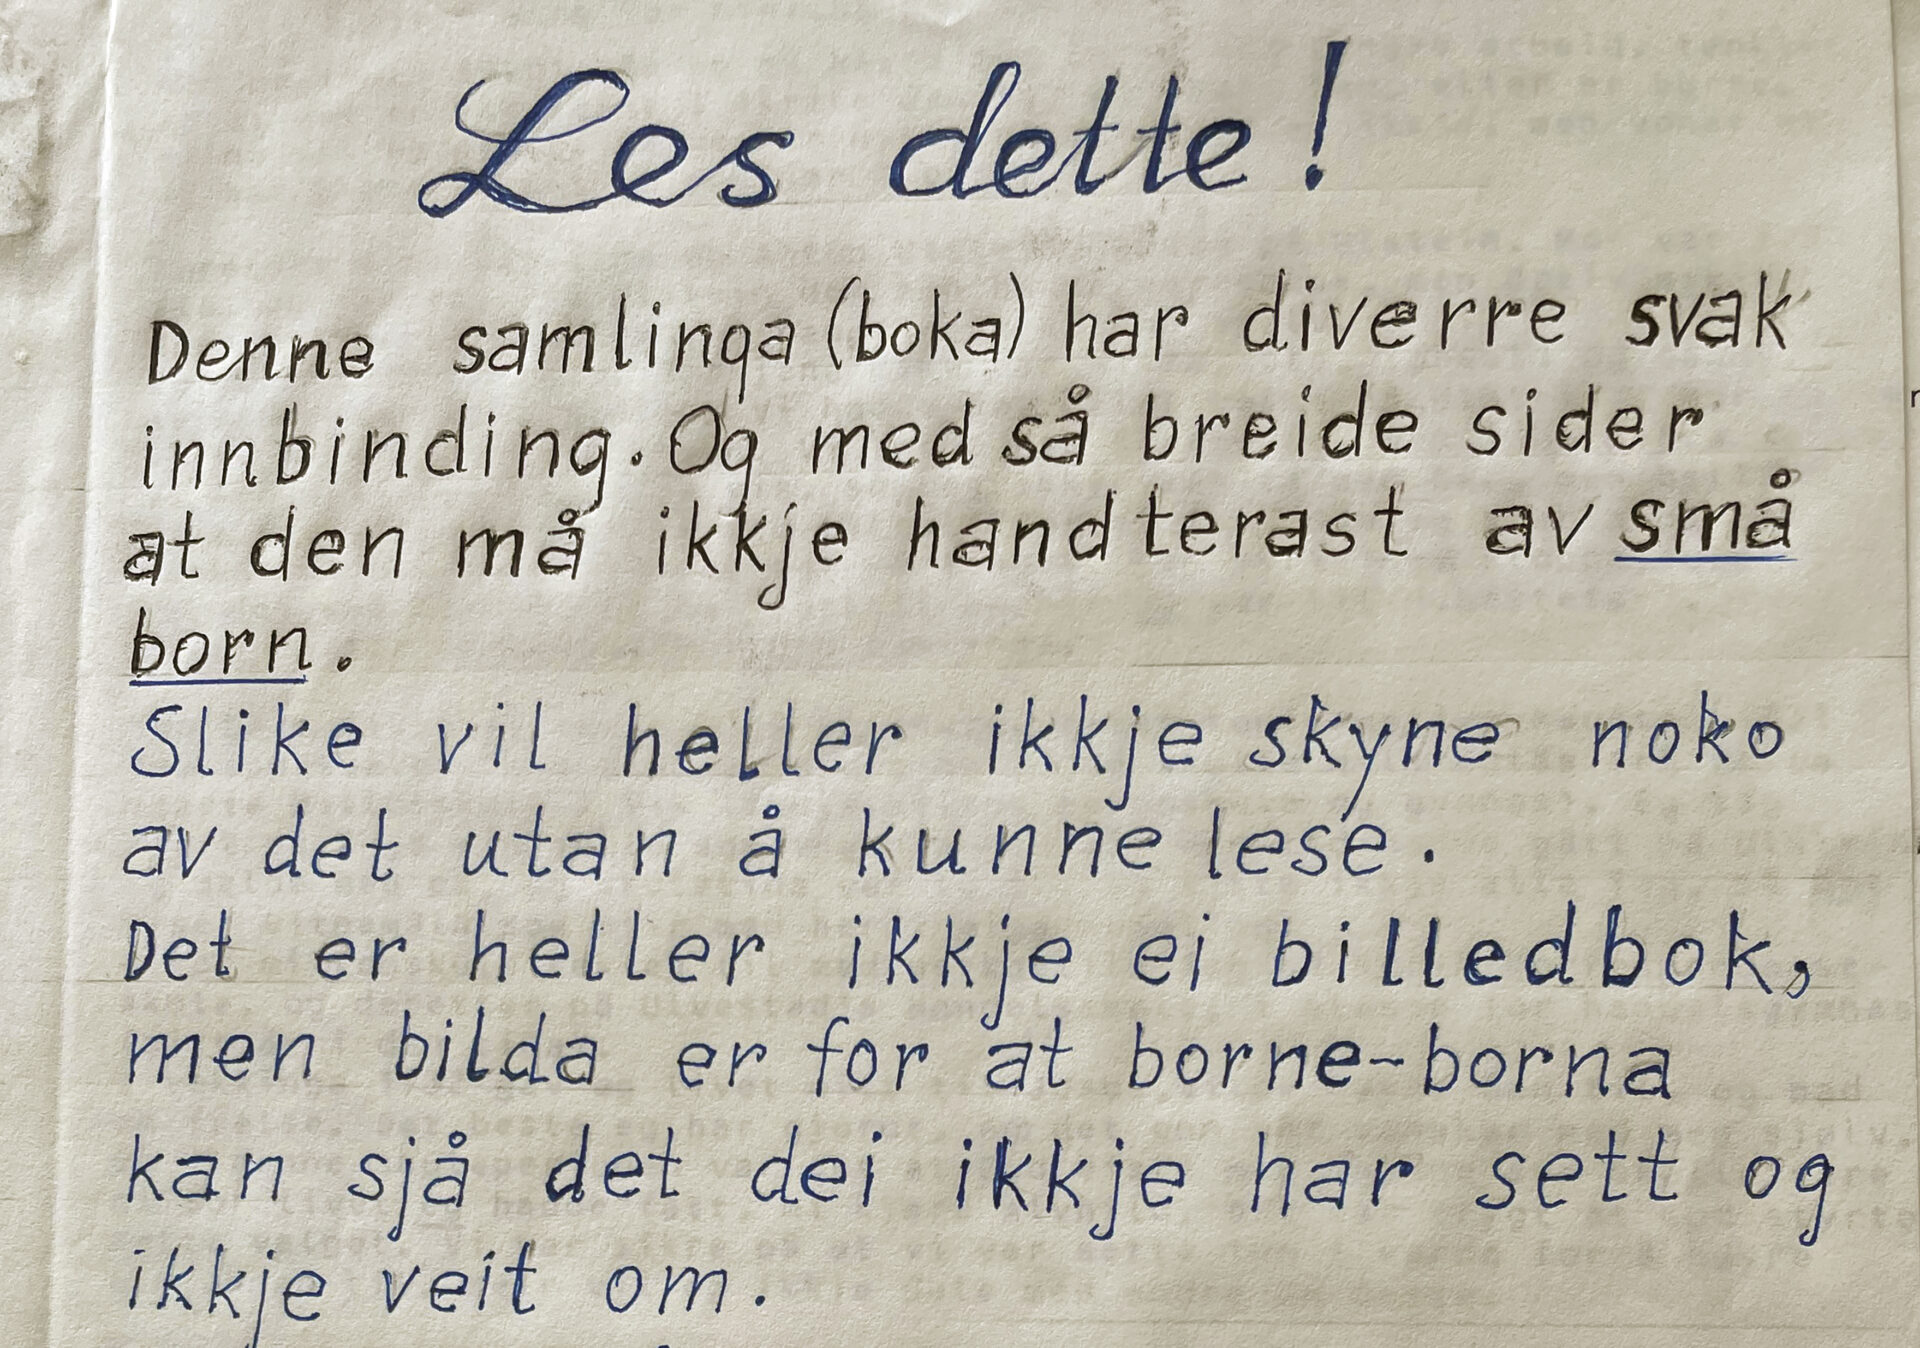 Les dette!
Denne samlinga (boka) har diverre svak
innbinding. Og med så breide sider
at den må ikkje handterast av små
born.
Slike vil heller ikkje skyne noko
av det utan å kunne lese.
Det er heller ikkje ei billedbok,
men bilda er for at borne-borna
kan sjå det dei ikkje har sett og
ikkje veit om.